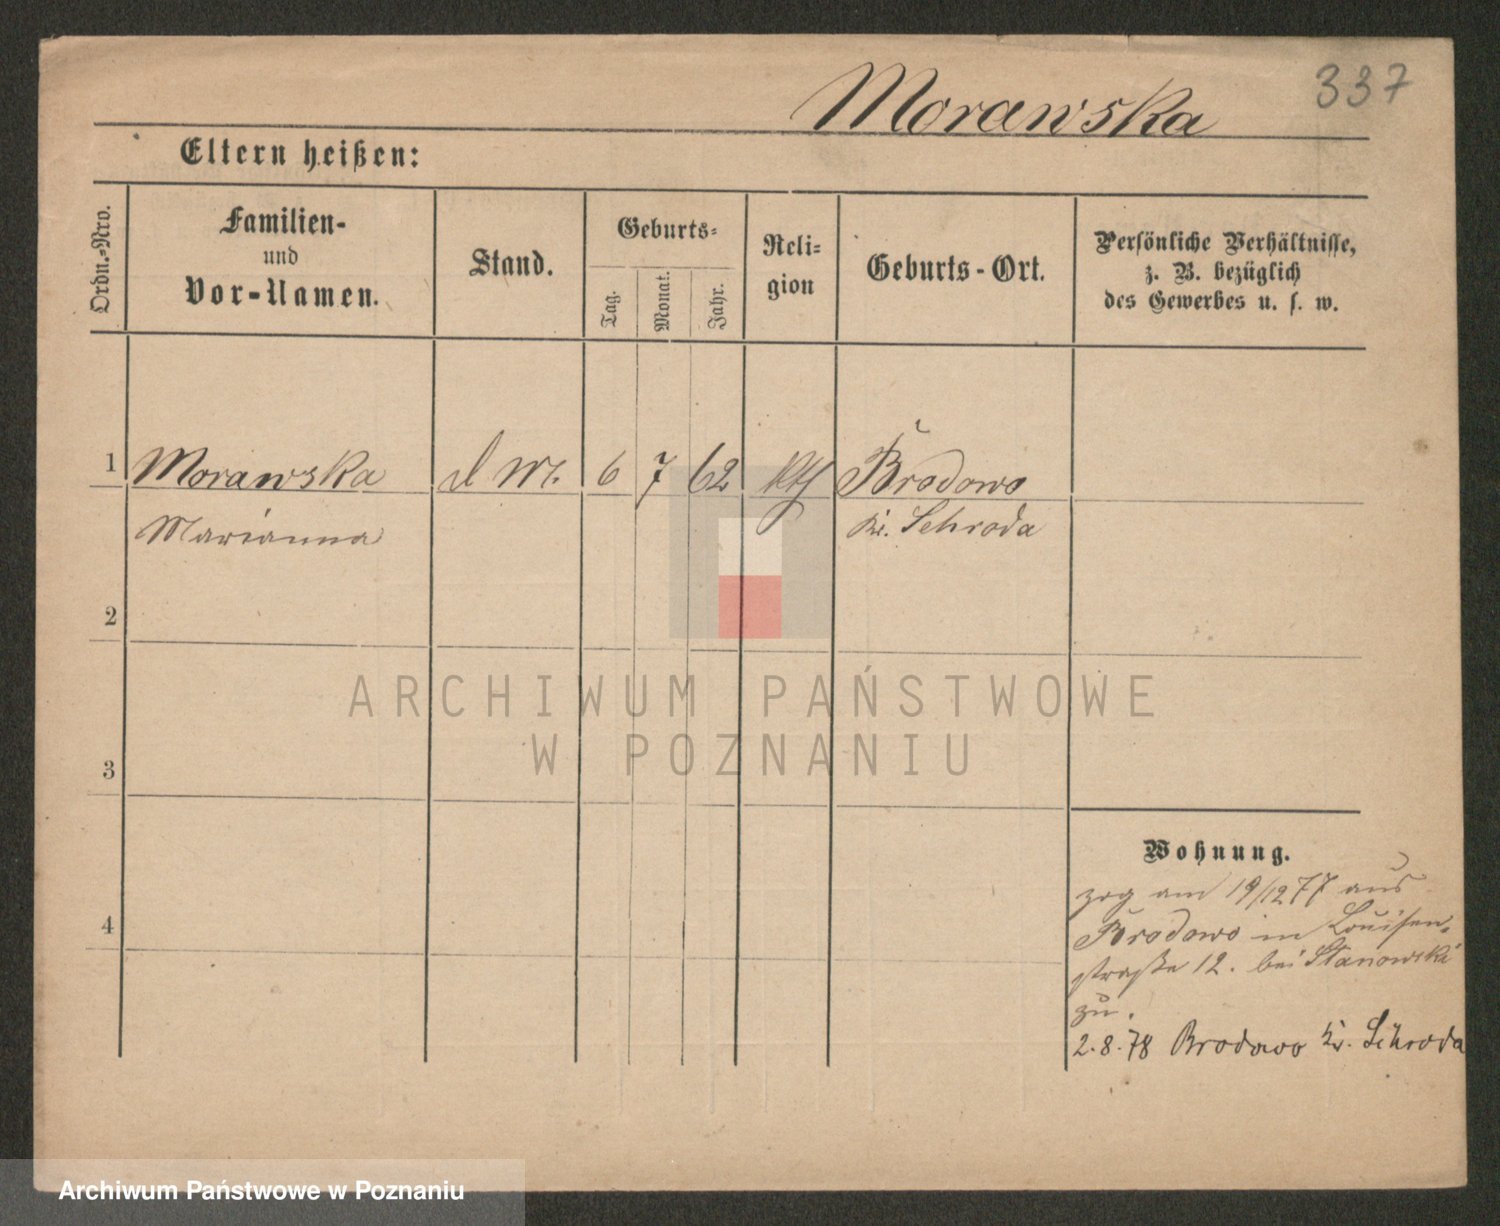 Morawska 337
Eltern heißen:
Ordn.-Nro.
Familien-
und
Vor-Namen.
Stand.
Geburts-
Tag.
Monat.
Jahr.
Reli-
gion
Geburts-Ort.
Persönliche Verhältnisse,
z. B. bezüglich
des Gewerbes u. s. w.
1 Morawska d M. 6 7 62 kth Brodowo
Marianna Kr. Schroda
2
ARCHIWUM PAŃSTWOWE
W POZNANIU
3
Wohnung.
zog am 19/12 77 aus
Brodowo in Louisen-
straße 12. bei Stanowski
zu.
4
2.8.78 Brodowo Kr. Schroda
Archiwum Państwowe w Poznaniu